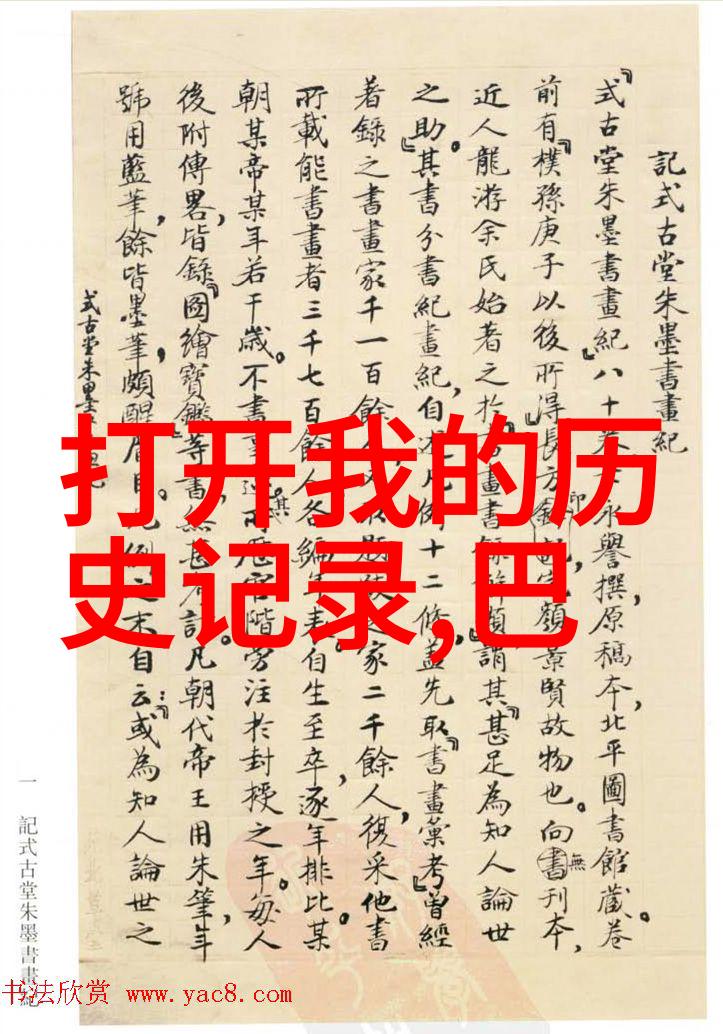 記式古堂朱墨書畫紀
『式古堂朱墨書畫紀』八十卷
永譽撰，原稿本，北平圖書館藏。卷
前有『樸孫庚子以後所得』長方
景賢故物也。向無刊本，
近人龍游余氏始著之於
謂其『甚足為知人論世
之助』。其書分書紀畫紀，自
凡例十二條，蓋先取『書畫彙考』曾經
著錄之書畫家千一百餘人，
家二千餘人，復采他書
所載能書畫者三千七百餘人，各編年表。自生至卒，逐年排比某
朝某帝某年若干歲。不書事
官階旁注於封授之年。每人
後附傳畧，皆錄『圖繪寶鑑』等書，無甚
凡朝代帝王用朱筆，年
號用藍筆，餘皆墨筆，頗醒眉目。凡例之末自云：『或為知人論世之
式古堂朱墨
一
記式古堂朱墨書畫紀
打开我的历
史记录,巴
书法欣赏 www.yac8.com